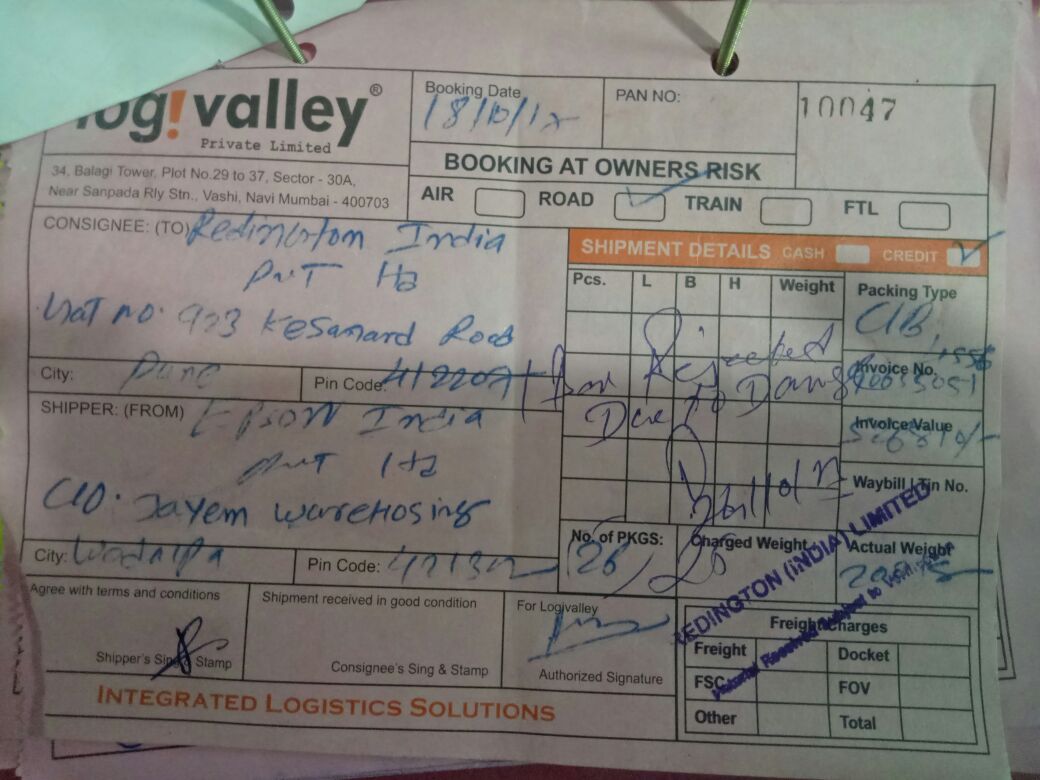 log!valley®
Private Limited
34, Balagi Tower, Plot No.29 to 37, Sector - 30A,
Near Sanpada Rly Stn., Vashi, Navi Mumbai - 400703
Booking Date
18/10/17
PAN NO:
10047
BOOKING AT OWNERS RISK
AIR ROAD TRAIN FTL
CONSIGNEE: (TO) Redington India
PVT Ltd
Gat no. 923 Kesanand Road
City: Pune Pin Code: 412207
SHIPPER: (FROM) Epson India
PVT Ltd
C/O. Jayem warehosing
City: Pin Code:
SHIPMENT DETAILS CASH CREDIT
Pcs. L B H Weight
Packing Type
C/B
Invoice No.
Invoice Value
Waybill / Tin No.
1 Box Rejected
Due To Damage
No. of PKGS: 26
Charged Weight
Actual Weight
REDINGTON (INDIA) LIMITED
Material Received Subject to
Agree with terms and conditions
Shipper's Sing & Stamp
Shipment received in good condition
Consignee's Sing & Stamp
For Logivalley
Authorized Signature
Freight Charges
Freight Docket
FSC FOV
Other Total
INTEGRATED LOGISTICS SOLUTIONS